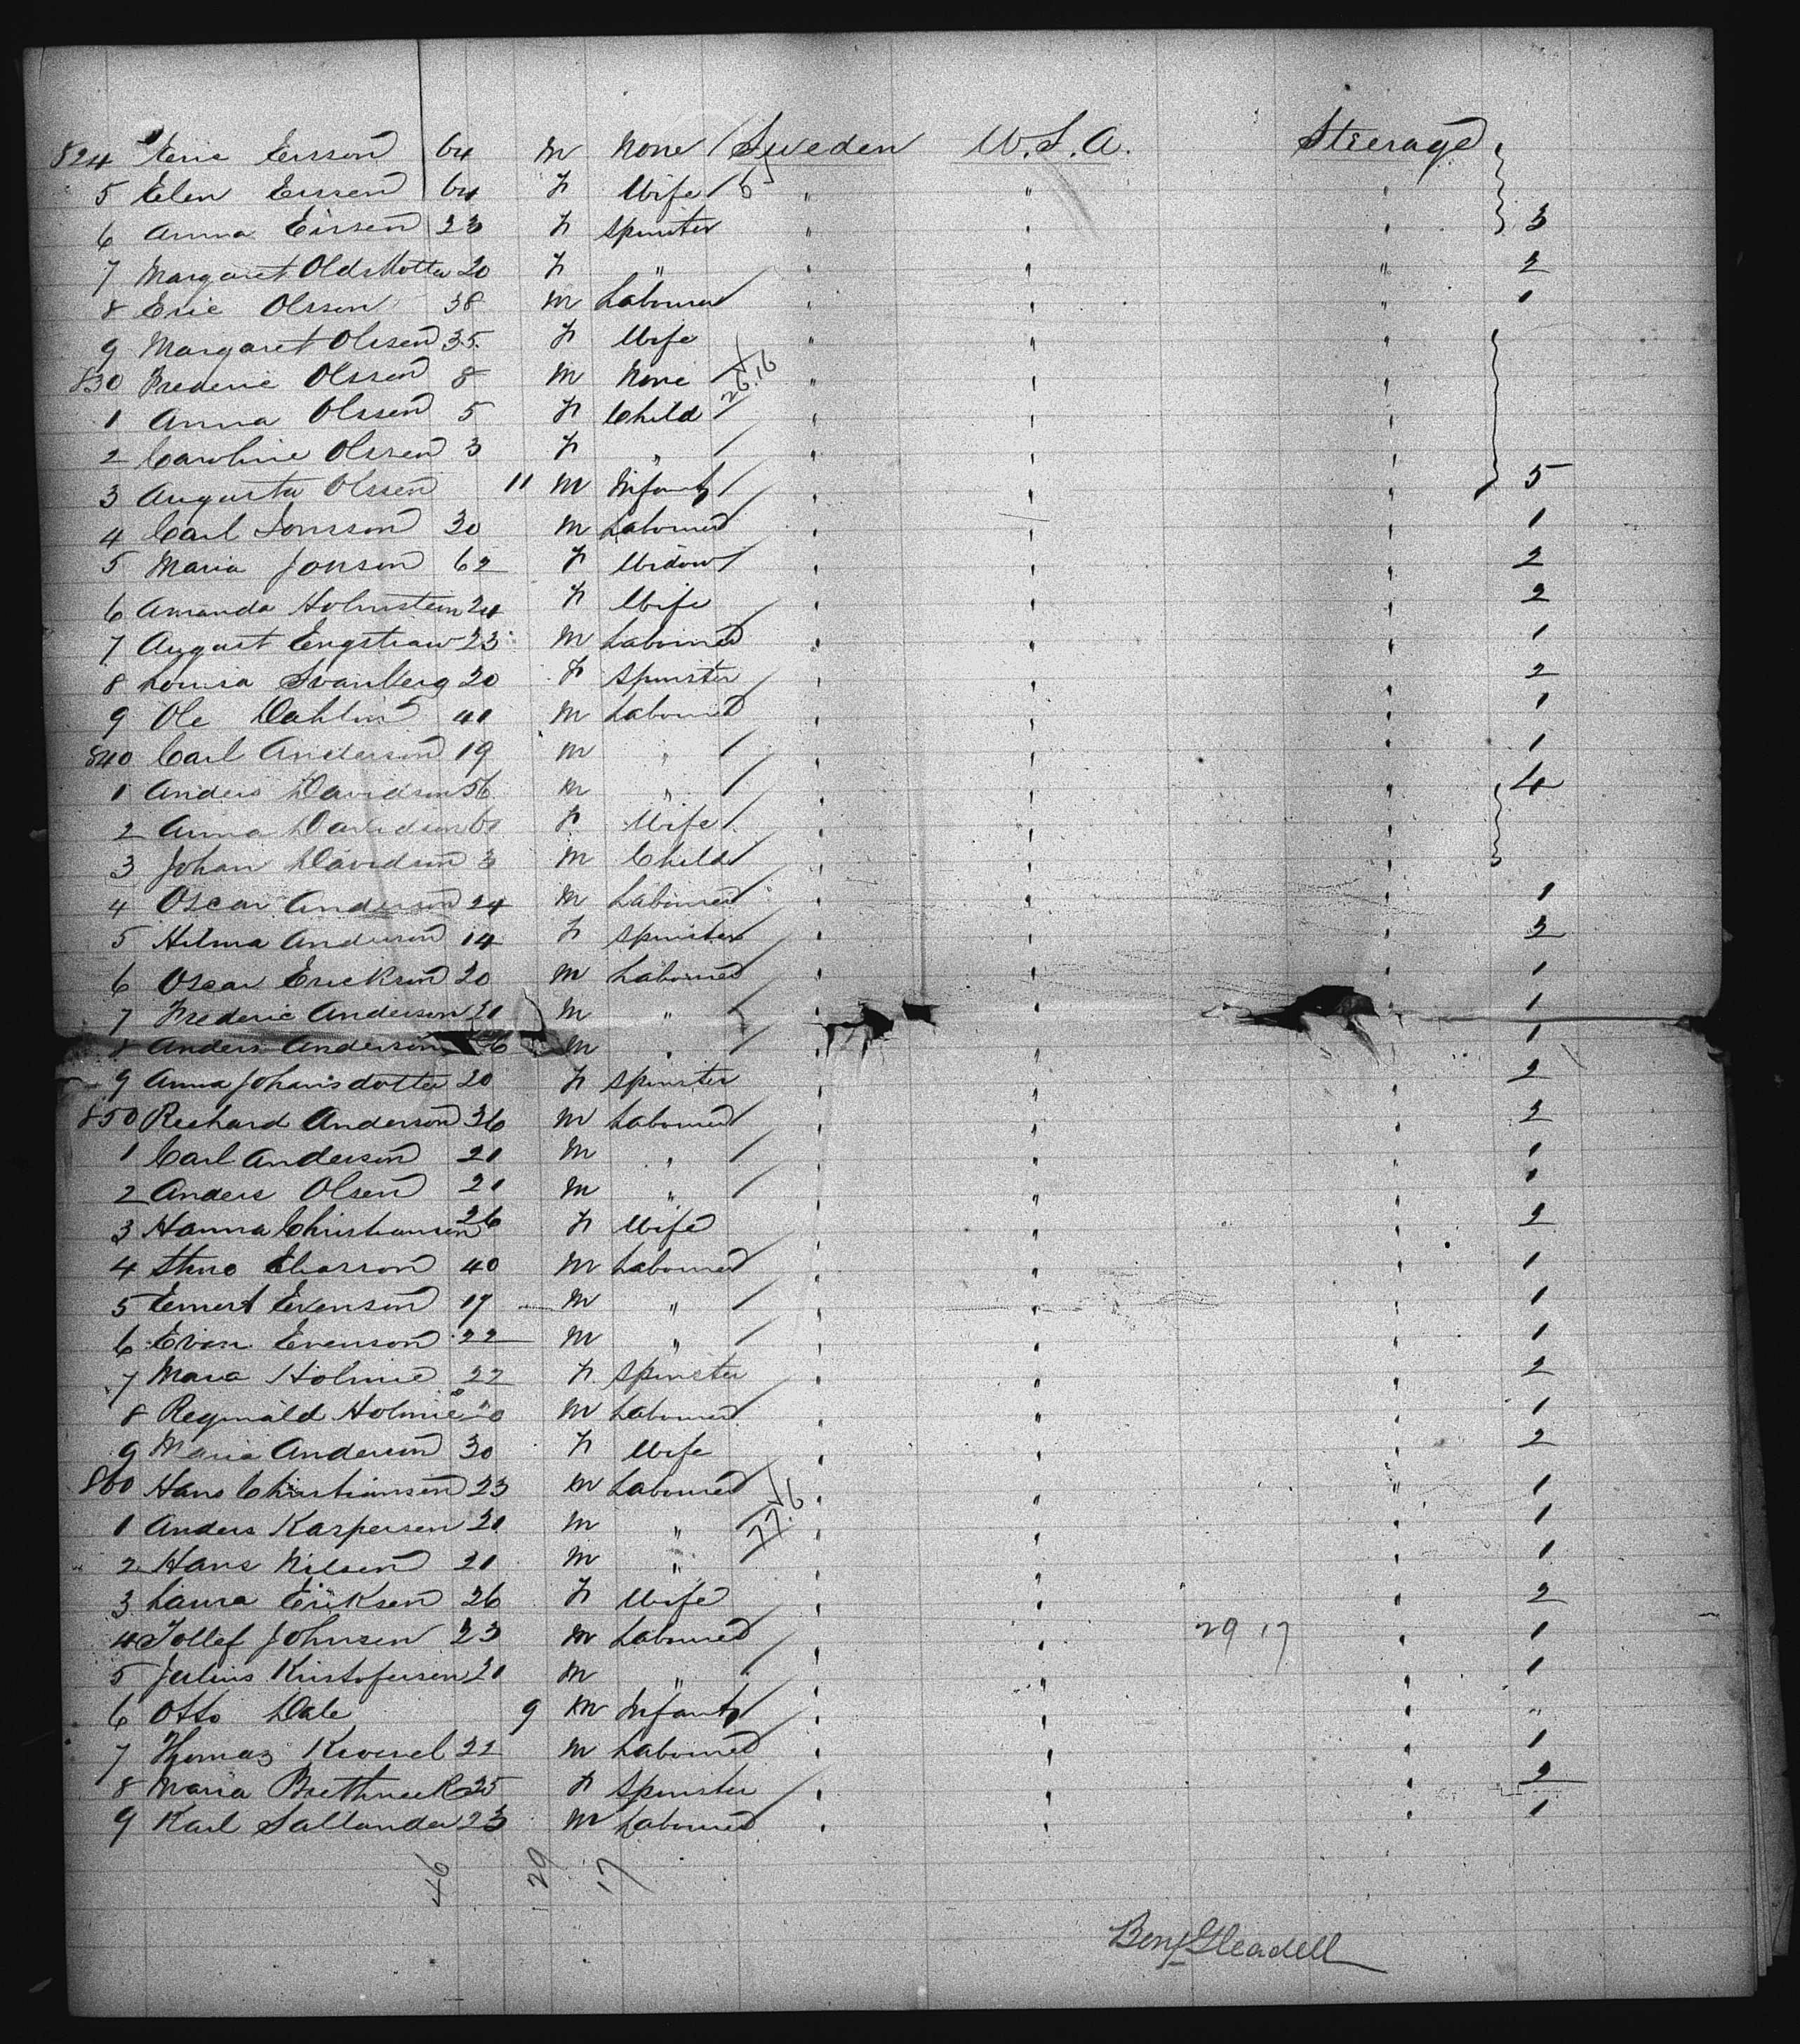 824 Eric Ersson 64 M None Sweden U.S.A. Steerage
5 Elen Erssen 64 F Wife " " "
6 Anna Eirsen 23 F Spinster " " " 3
7 Margaret Oldsdotter 20 F " " " " 2
8 Eric Olsson 38 M Laboured " " " 1
9 Margaret Olssen 35 F Wife " " "
830 Frederic Olssen 8 M None " " "
1 Anna Olssen 5 F Child " " "
2 Caroline Olssen 3 F " " " "
3 Augusta Olssen 11 M Infant " " " 5
4 Carl Jonsson 30 M Laboured " " " 1
5 Maria Jonson 62 F Widow " " " 2
6 Amanda Holmstein 24 F Wife " " " 2
7 August Engstraw 23 M Laboured " " " 1
8 Louisa Svanberg 20 F Spinster " " " 2
9 Ole Dahlin 41 M Laboured " " " 1
840 Carl Anderson 19 M " " " " 1
1 Anders Davidson 56 M " " " " 4
2 Anna Davidson F Wife " " "
3 Johan Davidson 3 M Child " " "
4 Oscar Anderson 24 M Laboured " " " 1
5 Hilma Anderson 14 F Spinster " " " 2
6 Oscar Erickson 20 M Laboured " " " 1
7 Frederic Anderson 21 M " " " " 1
8 Anders Anderson M " " " " 1
9 Anna Johansdotter 20 F Spinster " " " 2
850 Richard Anderson 36 M Laboured " " " 2
1 Carl Anderson 21 M " " " " 1
2 Anders Olsen 21 M " " " " 1
3 Hanna Christiansen 26 F Wife " " " 2
4 Eliasson 40 M Laboured " " " 1
5 Evenson 19 M " " " " 1
6 Evan Evenson 22 M " " " " 1
7 Mara Holmie 22 F Spinster " " " 2
8 Reginald Holmie M Laboured " " " 1
9 Maria Anderson 30 F Wife " " " 2
860 Hans Christiansen 23 M Laboured " " " 1
1 Anders Kaspersen 21 M " " " " 1
2 Hans Nilsen 21 M " " " " 1
3 Laura Eriksen 26 F Wife " " " 2
4 Tollef Johnsen 23 M Laboured " " 29 17 " 1
5 Julius Kristofersen 21 M " " " " 1
6 Otto Dale 9 M Infant " " " "
7 Thomas 22 M Laboured " " " 1
8 Maria 25 F Spinster " " " 2
9 Karl Sallander 23 M Laboured " " " 1
46 29 17
Benj Gleadell